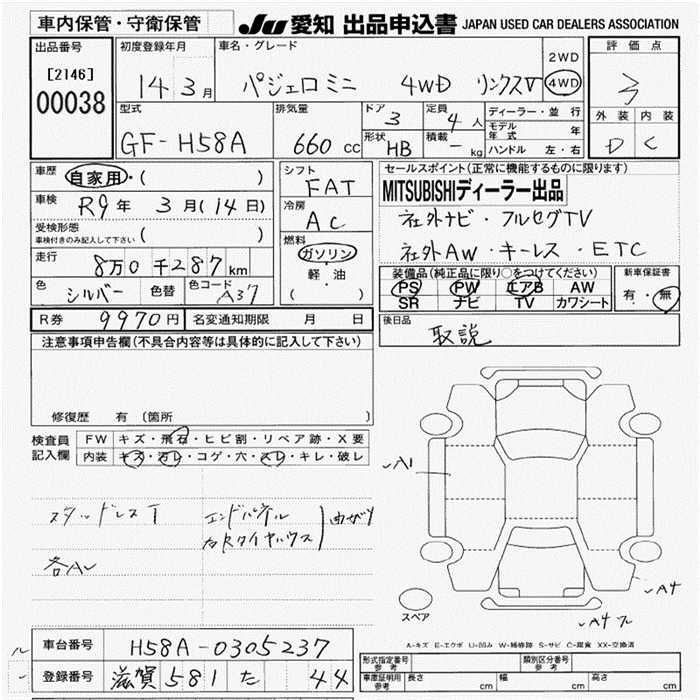 車内保管・守衛保管 JU 愛知 出品申込書 JAPAN USED CAR DEALERS ASSOCIATION
出品番号 初度登録年月 車名・グレード 2WD 評価点
[2146] 14 3月 パジェロ ミニ 4WD リンクスV 4WD 3
00038
型式 排気量 ドア 3 定員 4人 ディーラー・並行 外装 内装
GF-H58A 660 cc 形状 HB 積載 - kg モデル年式 年 D C
ハンドル 左・右
車歴 自家用・( ) シフト FAT セールスポイント(正常に機能するものに限ります)
車検 R9年 3月(14日) 冷房 AC MITSUBISHIディーラー出品
受検形態 ( ) 社外ナビ・フルセグTV
車検付きのみ記入して下さい 燃料 ガソリン 社外AW・キーレス・ETC
走行 8万0千287km 軽・油 装備品(純正品に限り○をつけてください) 新車保証書
色 シルバー 色替 色コード A37 ( ) PS PW エアB AW 有・無
SR ナビ TV カワシート
R券 9970円 名変通知期限 月 日 後日品 取説
注意事項申告欄(不具合内容等は具体的に記入して下さい)
修復歴 有(箇所 )
検査員 FW キズ・飛石・ヒビ割・リペア跡・X要
記入欄 内装 キズ・汚レ・コゲ・穴・スレ・キレ・破レ
A1
スタッドレスT エンドパネル
右Rタイヤハウス 曲がり
A4
スペア A4
A-キズ E-エクボ U-凹み W-補修跡 S-サビ C-腐食 XX-交換済
車台番号 H58A-0305237 形式指定番号 参考 類別区分番号 参考
登録番号 滋賀 581 た 44 車庫証明用 参考 長さ cm 幅 cm 高さ cm